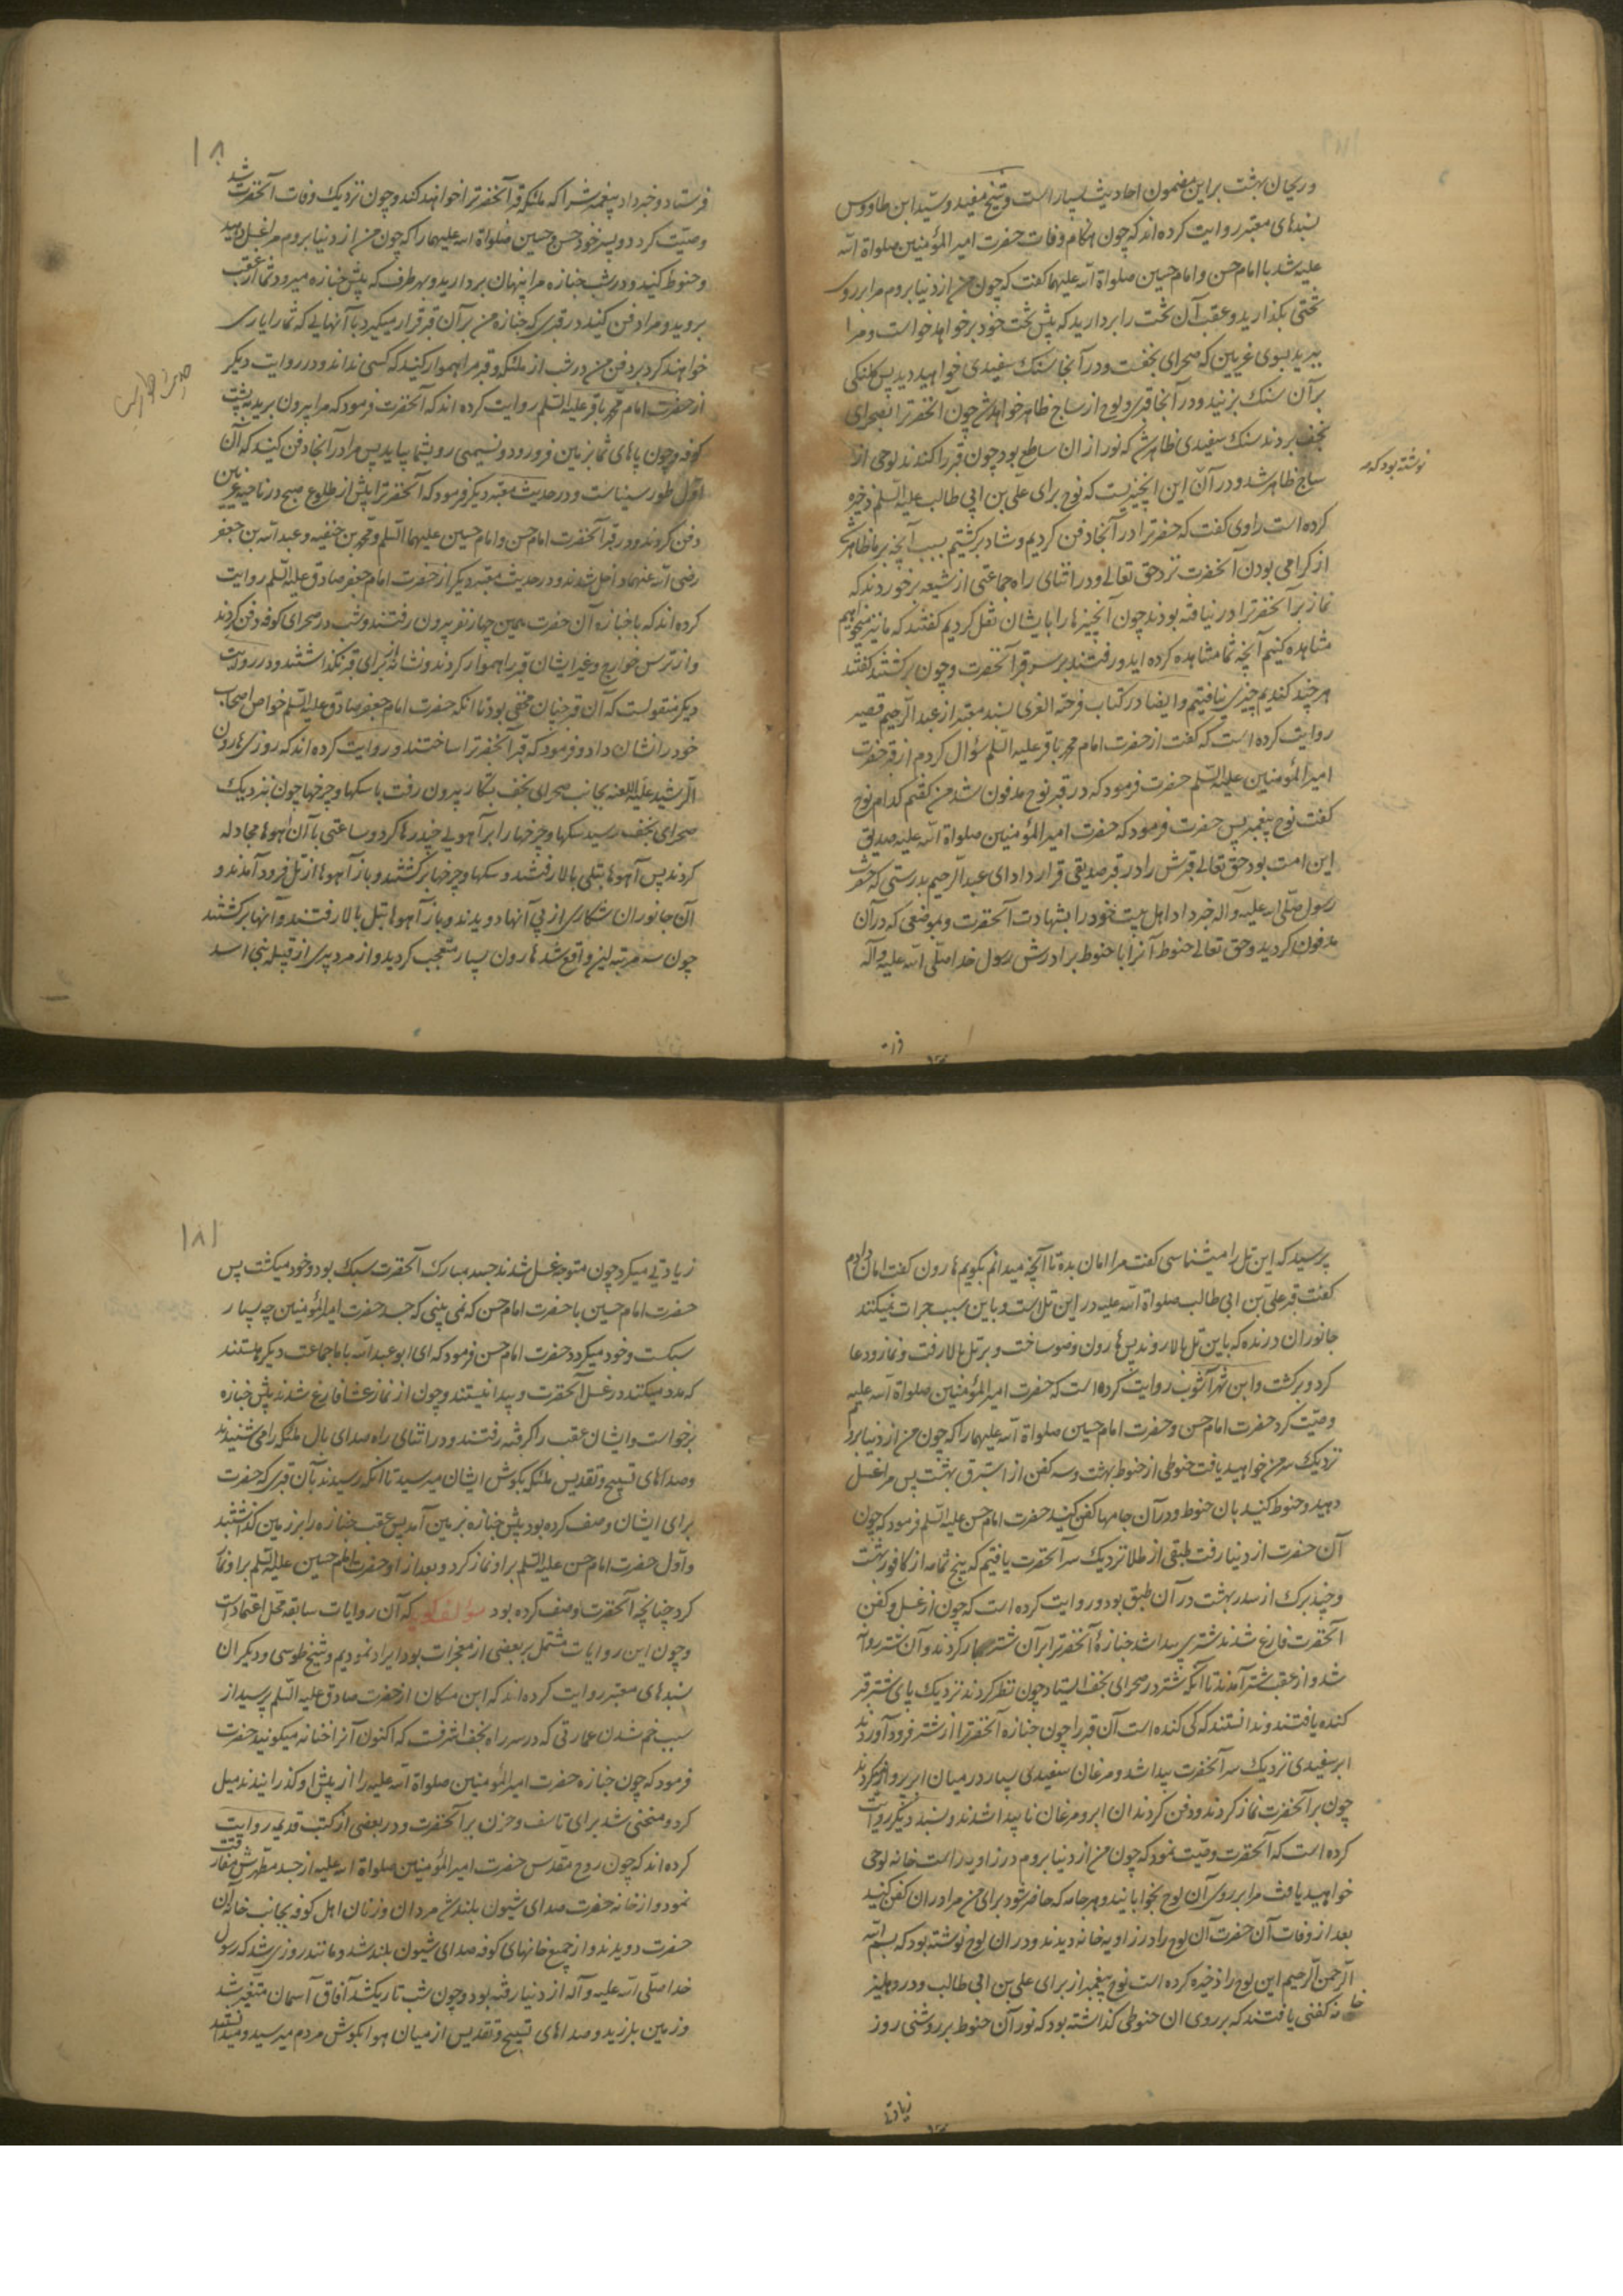 و ریحان بهشت بر این مضمون احادیث بسیار است و شیخ مفید و سید ابن طاووس
بسندهای معتبر روایت کرده‌اند که چون هنگام وفات حضرت امیر المؤمنین صلواة الله
علیه شد با امام حسن و امام حسین صلواة الله علیهما کفت که چون من از دنیا بروم مرا بر روی
تختی بکذارید و عقب آن تخت را بردارید که پیش تخت خود برخواهد خواست و مرا
ببرید بسوی غریین که صحرای نجفست و در آنجا سنک سفیدی خواهید دید پس کلنکی
بر آن سنک بزنید و در آنجا قبری و لوح از ساج ظاهر خواهد شد چون آنحضرترا بصحرای
نجف بردند سنک سفیدی ظاهر شد که نور از ان ساطع بود چون قبر را کندند لوحی از
ساج ظاهر شد و در آن این آنچیزیست که نوح برای علی بن ابی طالب علیه السلم ذخیره
نوشته بود که
کرده است راوی کفت که حضرترا در آنجا دفن کردیم و شاد برکشتیم بسبب آنچه بر ما ظاهر شد
از کرامی بودن آنحضرت نزد حق تعالی و در اثنای راه جماعتی از شیعه برخوردند که
نماز بر آنحضرترا در نیافته بودند چون آنچیزها را بایشان نقل کردیم کفتند که ما نیز میخواهیم
مشاهده کنیم آنچه شما مشاهده کرده‌اید و رفتند بر سر قبر آنحضرت و چون برکشتند کفتند
هر چند کندیم چیزی نیافتیم و ایضا در کتاب فرحة الغری بسند معتبر از عبد الرحیم قصیر
روایت کرده است که کفت از حضرت امام محمد باقر علیه السلم سؤال کردم از قبر حضرت
امیر المؤمنین علیه السلم حضرت فرمود که در قبر نوح مدفون شد من کفتم کدام نوح
کفت نوح پیغمبر پس حضرت فرمود که حضرت امیر المؤمنین صلواة الله علیه صدیق
این امت بود حق تعالی قبرش را در قبر صدیقی قرار داد ای عبد الرحیم بدرستی که حضرت
رسول صلی الله علیه و آله خبر داد اهل بیت خود را بشهادت آنحضرت و بموضعی که در آن
مدفون کردید و حق تعالی حنوط آنرا با حنوط برادرش رسول خدا صلی الله علیه و آله
۱۸
فرستاد و خبر داد پیغمبرش را که ملئکه قبر آنحضرترا خواهند کند و چون نزدیک وفات آنحضرت شد
وصیت کرد دو پسر خود حسن و حسین صلواة الله علیهما را که چون من از دنیا بروم مرا غسل دهید
و حنوط کنید و در شب جنازه مرا پنهان بردارید و بهر طرف که پیش جنازه میرود شما از عقب
بروید و مرا دفن کنید در قبری که جنازه من بر آن قبر قرار میکیرد با آنهایی که شما را یاری
خواهند کرد بر دفن من در شب از ملئکه و قبر مرا هموار کنید که کسی نداند و در روایت دیکر
از حضرت امام محمد باقر علیه السلم روایت کرده‌اند که آنحضرت فرمود که مرا بیرون برید به پشت
کوفه و چون پاهای شما بزمین فرو رود و نسیمی رو بشما بیاید پس مرا در آنجا دفن کنید که آن
اول طور سیناست و در حدیث معتبر دیکر فرمود که آنحضرترا پیش از طلوع صبح در ناحیه غریین
دفن کردند و در قبر آنحضرت امام حسن و امام حسین علیهما السلم و محمد بن حنفیه و عبد الله بن جعفر
رضی الله عنهما داخل شدند و در حدیث معتبر دیکر از حضرت امام جعفر صادق علیه السلم روایت
کرده‌اند که با جنازه آن حضرت همین چهار نفر بیرون رفتند و شب در صحرای کوفه دفن کردند
و از ترس خوارج و غیر ایشان قبر را هموار کردند و نشانه از برای قبر نکذاشتند و در روایت
دیکر منقولست که آن قبر چنان مخفی بود تا انکه حضرت امام جعفر صادق علیه السلم خواص اصحاب
خود را نشان داد و فرمود که قبر آنحضرترا ساختند و روایت کرده‌اند که روزی هارون
الرشید علیه اللعنه بجانب صحرای نجف بشکار بیرون رفت با سکها و چرخها چون نزدیک
صحرای نجف رسید سکها و چرخها را بر آهویی چند رها کرد و ساعتی با آن آهوها مجادله
کردند پس آهوها بتلی بالا رفتند و سکها و چرخها برکشتند و باز آهوها از تل فرود آمدند و
آن جانوران شکاری از پی آنها دویدند و باز آهوها بتل بالا رفتند و آنها برکشتند
چون سه مرتبه این واقع شد هارون بسیار متعجب کردید و از مرد پیری از قبیله بنی اسد
پرسید که این تل را میشناسی کفت مرا امان بده تا آنچه میدانم بکویم هارون کفت امان دادم
کفت قبر علی بن ابی طالب صلواة الله علیه در این تل است و باین سبب جرات نمیکنند
جانوران درنده که باین تل بالا روند پس هارون وضو ساخت و بر تل بالا رفت و نماز و دعا
کرد و برکشت و ابن شهرآشوب روایت کرده است که حضرت امیر المؤمنین صلواة الله علیه
وصیت کرد حضرت امام حسن و حضرت امام حسین صلواة الله علیهما را که چون من از دنیا بروم
نزدیک سر من خواهید یافت حنوطی از حنوط بهشت و سه کفن از استبرق بهشت پس مرا غسل
دهید و حنوط کنید بان حنوط و در آن جامها کفن کنید حضرت امام حسن علیه السلم فرمود که چون
آن حضرت از دنیا رفت طبقی از طلا نزدیک سر آنحضرت یافتیم که پنج شمامه از کافور بهشت
و چند برک از سدر بهشت در آن طبق بود و روایت کرده است که چون از غسل و کفن
آنحضرت فارغ شدند شتری پیدا شد جنازۀ آنحضرترا بر آن شتر بار کردند و آن شتر روانه
شد و از عقب شتر آمدند تا آنکه شتر در صحرای نجف ایستاد چون نظر کردند نزدیک پای شتر قبر
کنده یافتند و ندانستند که کی کنده است آن قبر را چون جنازه آنحضرترا از شتر فرود آوردند
ابر سفیدی نزدیک سر آنحضرت پیدا شد و مرغان سفیدی بسیار در میان ابر پرواز میکردند
چون بر آنحضرت نماز کردند و دفن کردند ان ابر و مرغان ناپیدا شدند و بسند دیکر روایت
کرده است که آنحضرت وصیت نمود که چون من از دنیا بروم در زاویه راست خانه لوحی
خواهید یافت مرا بر روی آن لوح بخوابانید و هر جامه که حاضر شود برای من مرا در ان کفن کنید
بعد از وفات آن حضرت آن لوح را در زاویه خانه دیدند و در ان لوح نوشته بود که بسم الله
الرحمن الرحیم این لوح را ذخیره کرده است نوح پیغمبر از برای علی بن ابی طالب و در دهلیز
خانه کفنی یافتند که بر روی ان حنوطی کذاشته بود که نور آن حنوط بر روشنی روز
۱۸۱
زیادتی میکرد چون متوجه غسل شدند جسد مبارک آنحضرت سبک بود و خود میکشت پس
حضرت امام حسین با حضرت امام حسن که نمی بینی که جسد حضرت امیر المؤمنین چه بسیار
سبکست و خود میکردد حضرت امام حسن فرمود که ای ابو عبد الله با ما جماعت دیکر هستند
که مدد میکنند در غسل آنحضرت و پیدا نیستند و چون از نماز عشا فارغ شدند پیش جنازه
برخواست و ایشان عقب را کرفته رفتند و در اثنای راه صدای بال ملئکه را می شنیدند
و صداهای تسبیح و تقدیس ملئکه بکوش ایشان میرسید تا انکه رسیدند بآن قبری که حضرت
برای ایشان وصف کرده بود پیش جنازه بزمین آمد پس عقب جنازه را بر زمین کذاشتند
و اول حضرت امام حسن علیه السلم بر او نماز کرد و بعد از او حضرت امام حسین علیه السلم بر او نماز
کرد چنانچه آنحضرت وصف کرده بود که آن روایات سابقه محل اعتماد است
و چون این روایات مشتمل بر بعضی از معجزات بود ایراد نمودیم و شیخ طوسی و دیکران
بسندهای معتبر روایت کرده‌اند که ابن مسکان از حضرت صادق علیه السلم پرسید از
سبب خم شدن عمارتی که در سر راه نجف اشرفست که اکنون آنرا حنانه میکویند حضرت
فرمود که چون جنازه حضرت امیر المؤمنین صلواة الله علیه را از پیش او کذرانیدند میل
کرد و منحنی شد برای تاسف و حزن بر آنحضرت و در بعضی از کتب قدیمه روایت
کرده‌اند که چون روح مقدس حضرت امیر المؤمنین صلواة الله علیه از جسد مطهرش مفارقت
نمود و از خانه حضرت صدای شیون بلند شد مردان و زنان اهل کوفه بجانب خانه ان
حضرت دویدند و از جمیع خانهای کوفه صدای شیون بلند شد و مانند روزی شد که رسول
خدا صلی الله علیه و آله از دنیا رفته بود و چون شب تاریک شد آفاق آسمان متغیر شد
و زمین بلرزید و صداهای تسبیح و تقدیس از میان هوا بکوش مردم میرسید و میدانستند